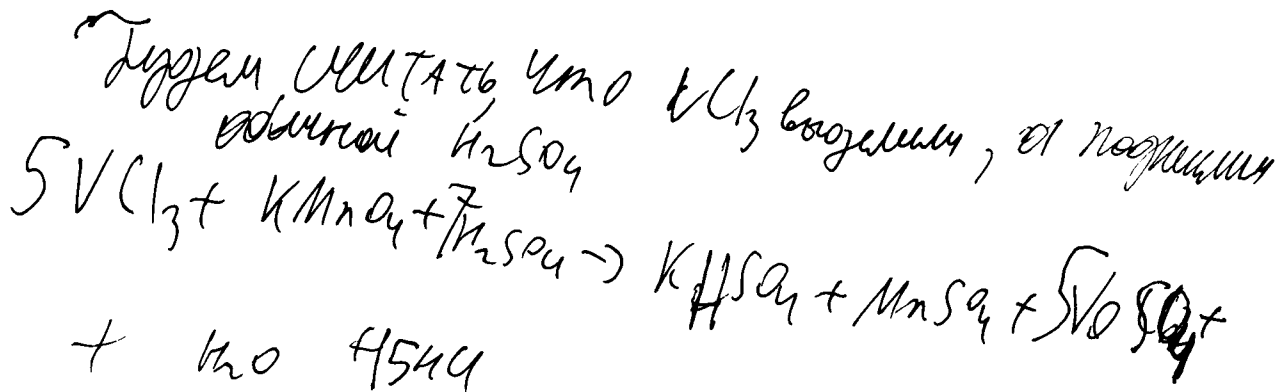 Будем считать, что VCl₃ выделили, а подкислили
обычной H₂SO₄
5VCl₃ + KMnO₄ + 7H₂SO₄ → KHSO₄ + MnSO₄ + 5VOSO₄ +
+ H₂O 15HCl